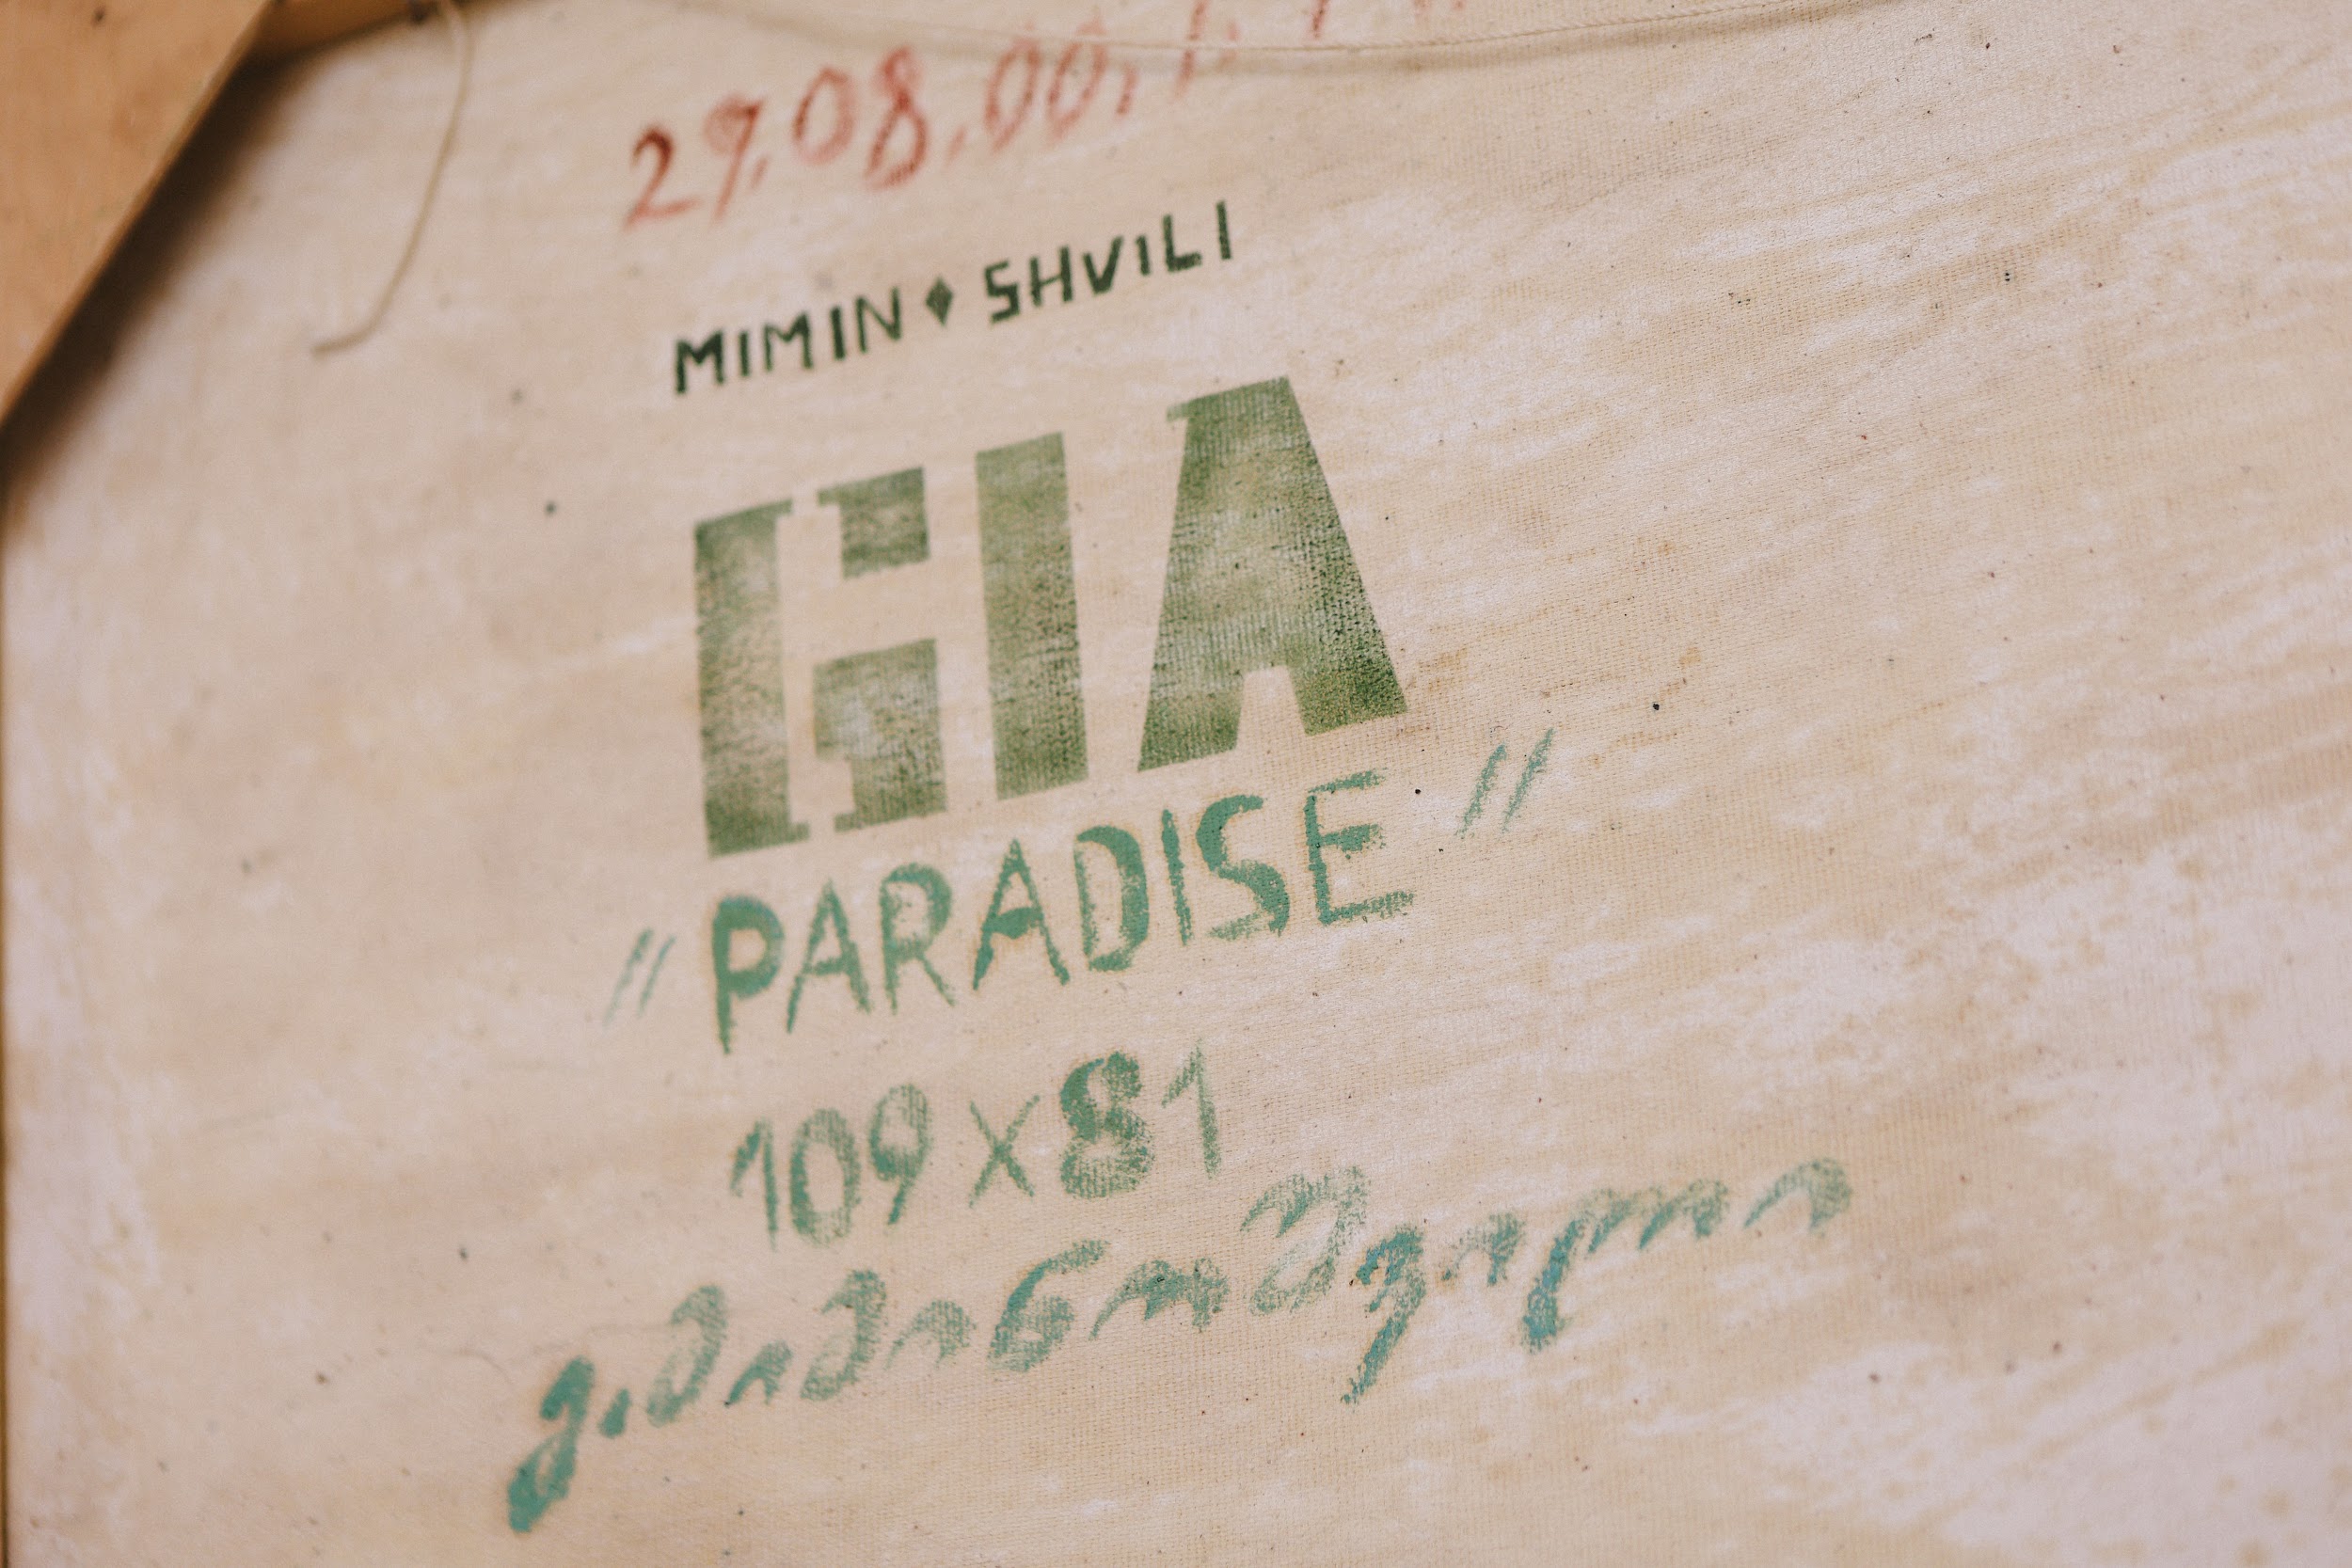 29.08.00.
MIMIN♦SHVILI
GIA
"PARADISE"
109×81
გ.მიმინოშვილი